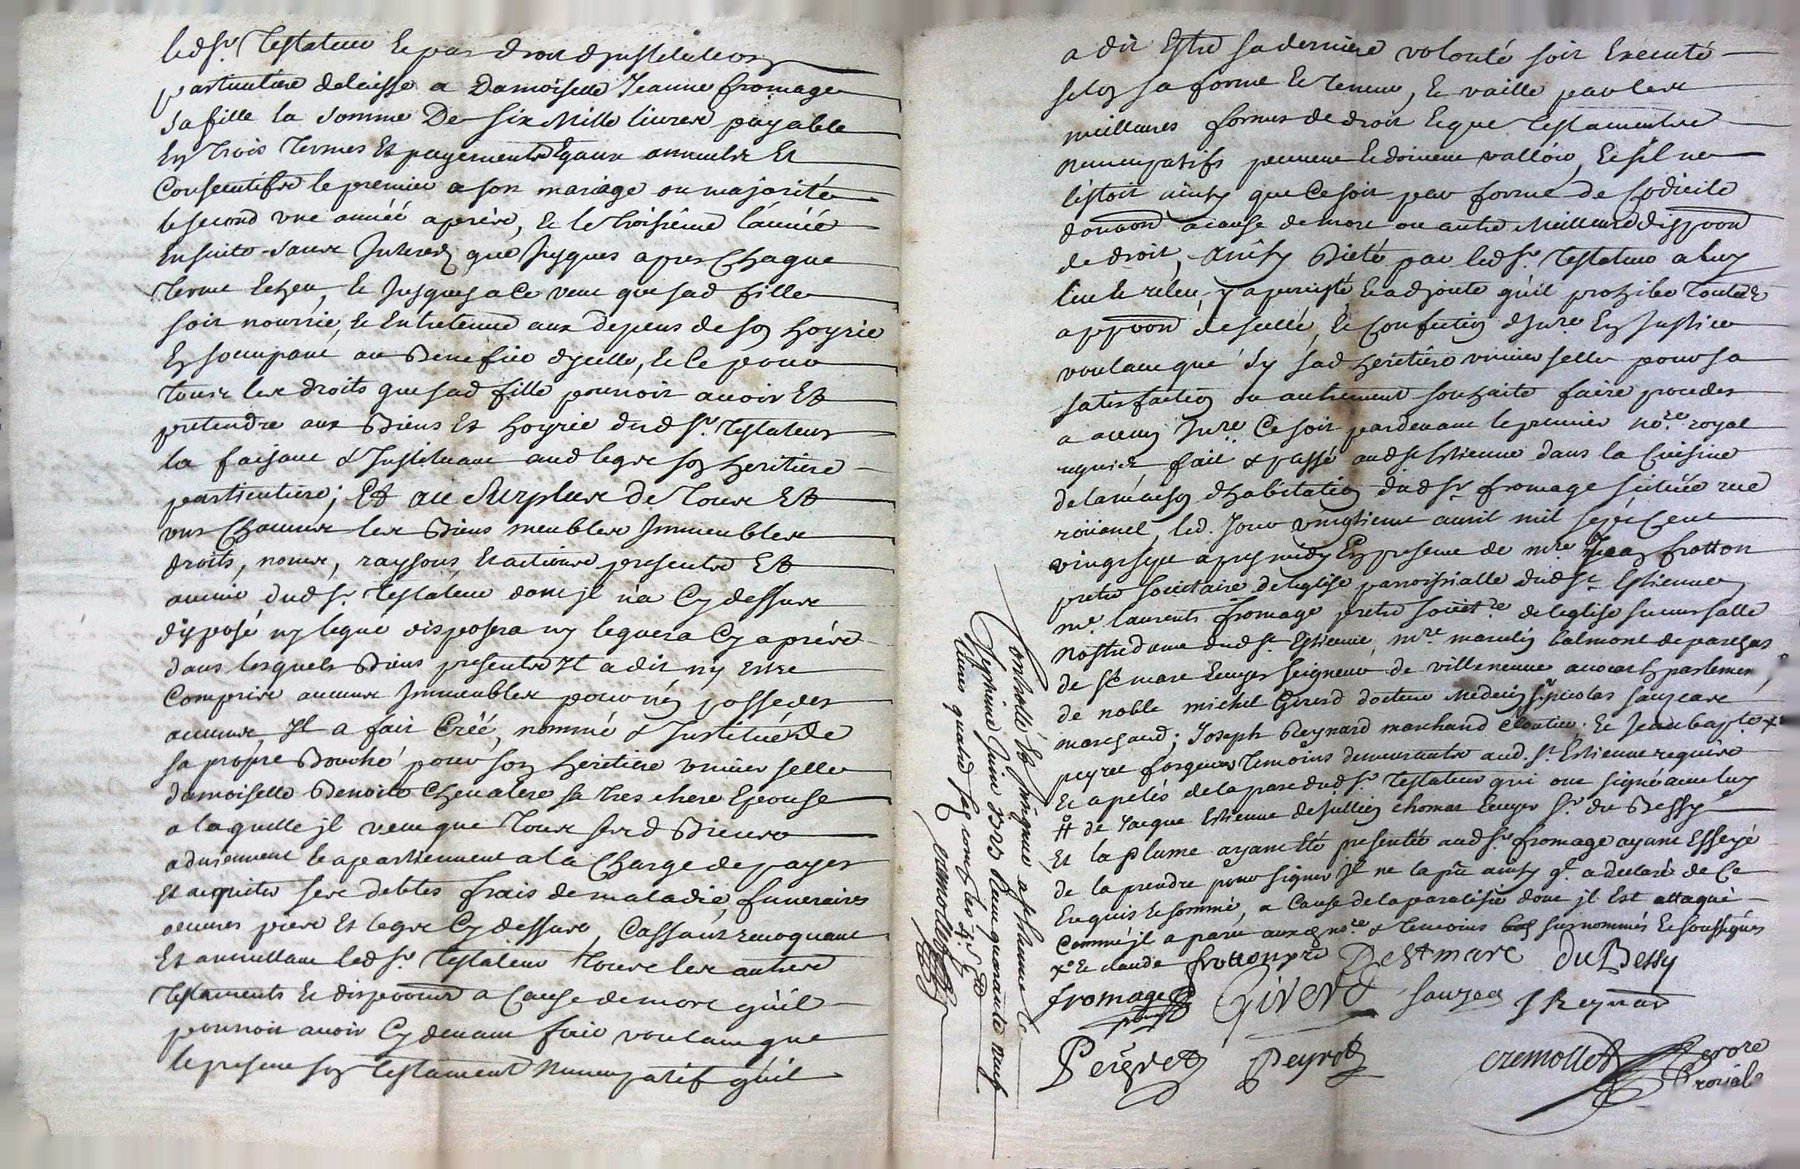 led Sr. Testateur Et par droit d'institution
particuliere delaisse a Damoiselle Jeanne fromage
sa fille la somme De Six Mille livres payable
En trois termes Et payements Egaux annuels Et
Consecutifs le premier a son mariage ou majorité
le second une année apres, Et le troisieme l'année
Ensuite sans Interest que Jusques apres Chaque
terme Echeu, Et Jusques a ce veut que sad fille
soit nourrie, Et Entretenue aux depens de son hoyrie
En soccupant au Benefice d'ycelle, Et ce pour
tous les droits que sad fille pourroit avoir Et
pretendre aux Biens Et hoyrie dud Sr. Testateur
la faisant & Instituant aud legs son heritiere
particuliere; Et au Surplus de Tous Et
uns Chacuns les Biens meubles Immeubles
droits, noms, raysons, Et actions presents Et
avenir dud Sr. Testateur dont jl n'a Cy dessus
disposé ny legué disposera ny leguera Cy apres
dans lesquels Biens presents Jl a dit n'y Estre
Compris aucuns Immeubles pour n'en posseder
aucuns, Jl a fait Créé, nommé & Institué de
sa propre Bouche pour son heritiere universelle
damoiselle Benoite Chevalier sa tres chere Epouse
a laquelle jl veut que tous sesd Biens
adviennent Et apartiennent a la Charge de payer
Et acquiter ses debtes frais de maladie, funeraires
oeuvres pies Et legs Cy dessus, Cassant revoquant
Et annullant led Sr. Testateur tous les autres
Testaments Et dispoons a Cause de mort qu'il
pourroit avoir Cy devant fait voulant que
le present son Testament Nuncupatif qu'il
a dit Estre sa derniere volonté soit Executé
selon sa forme Et teneur, Et vaille par les
meilleures formes de droit Et que Testaments
nuncupatifs peuvent Et doivent valloir, Et s'il ne
l'estoit ainsy que Ce soit par forme de Codicile
donaon a cause de mort ou autre Meilleure dispoon
de droit, ainsy Dicté par led Sr. Testateur a luy
leu Et releu, y a persisté, Et adjouté qu'il prohibe Toutes
appoon de scellé, Et Confection d'Inre. En Justice
voulant que sy sad heritiere universelle pour sa
satisfaction ou autrement souhaite faire proceder
a aucun Inre. Ce soit pardevant le premier nore. royal
requis fait & passé aud St Estienne dans la Cuisine
de la maison d'habitation dud Sr fromage scituée rue
roüanel, led. Jour vingtieme avril mil sept Cent
vingt sept apres midy En presence de mre Jean frotton
pretre societaire de l'eglise paroissialle dud St Estienne,
me. laurents fromage pretre sociétre de l'eglise succursalle
nostre dame dud St. Estienne, mre. marcelin balmont de parchas
de St marc Ecuyer seigneur de villeneuve avocat En parlement,
de noble michel Girerd docteur Medecin, Sr. nicolas sauzeas
marchand; Joseph Reynard marchand Cloutier; Et Jean bapte. x°
peyret forgeur Temoins demeurants aud. St. Estienne requis
Et apelés de la part dud Sr. Testateur qui ont signé avec luy
# de Jacque Estienne de Jullien thomas Ecuyer Sr. du Bessy
Et la plume ayant Eté presentée aud Sr fromage ayant Essayé
de la prendre pour signer Jl ne la pû ainsy qu'il a declaré de Ce
Enquis Et sommé, a Cause de la paralisie dont jl Est attaqué
Comme jl a paru auxd nore. & Temoins susnommés Et soussignés
x° Et claude frotton pre De St marc Du Bessy
fromage pbre Girerd sauzea J Reynard
Peyret Peyret cremollet nore
royal
Controllé Et Insinué a St Etienne le
septieme Juin 1728 Receu quarante neuf
livres quatre
cremollet